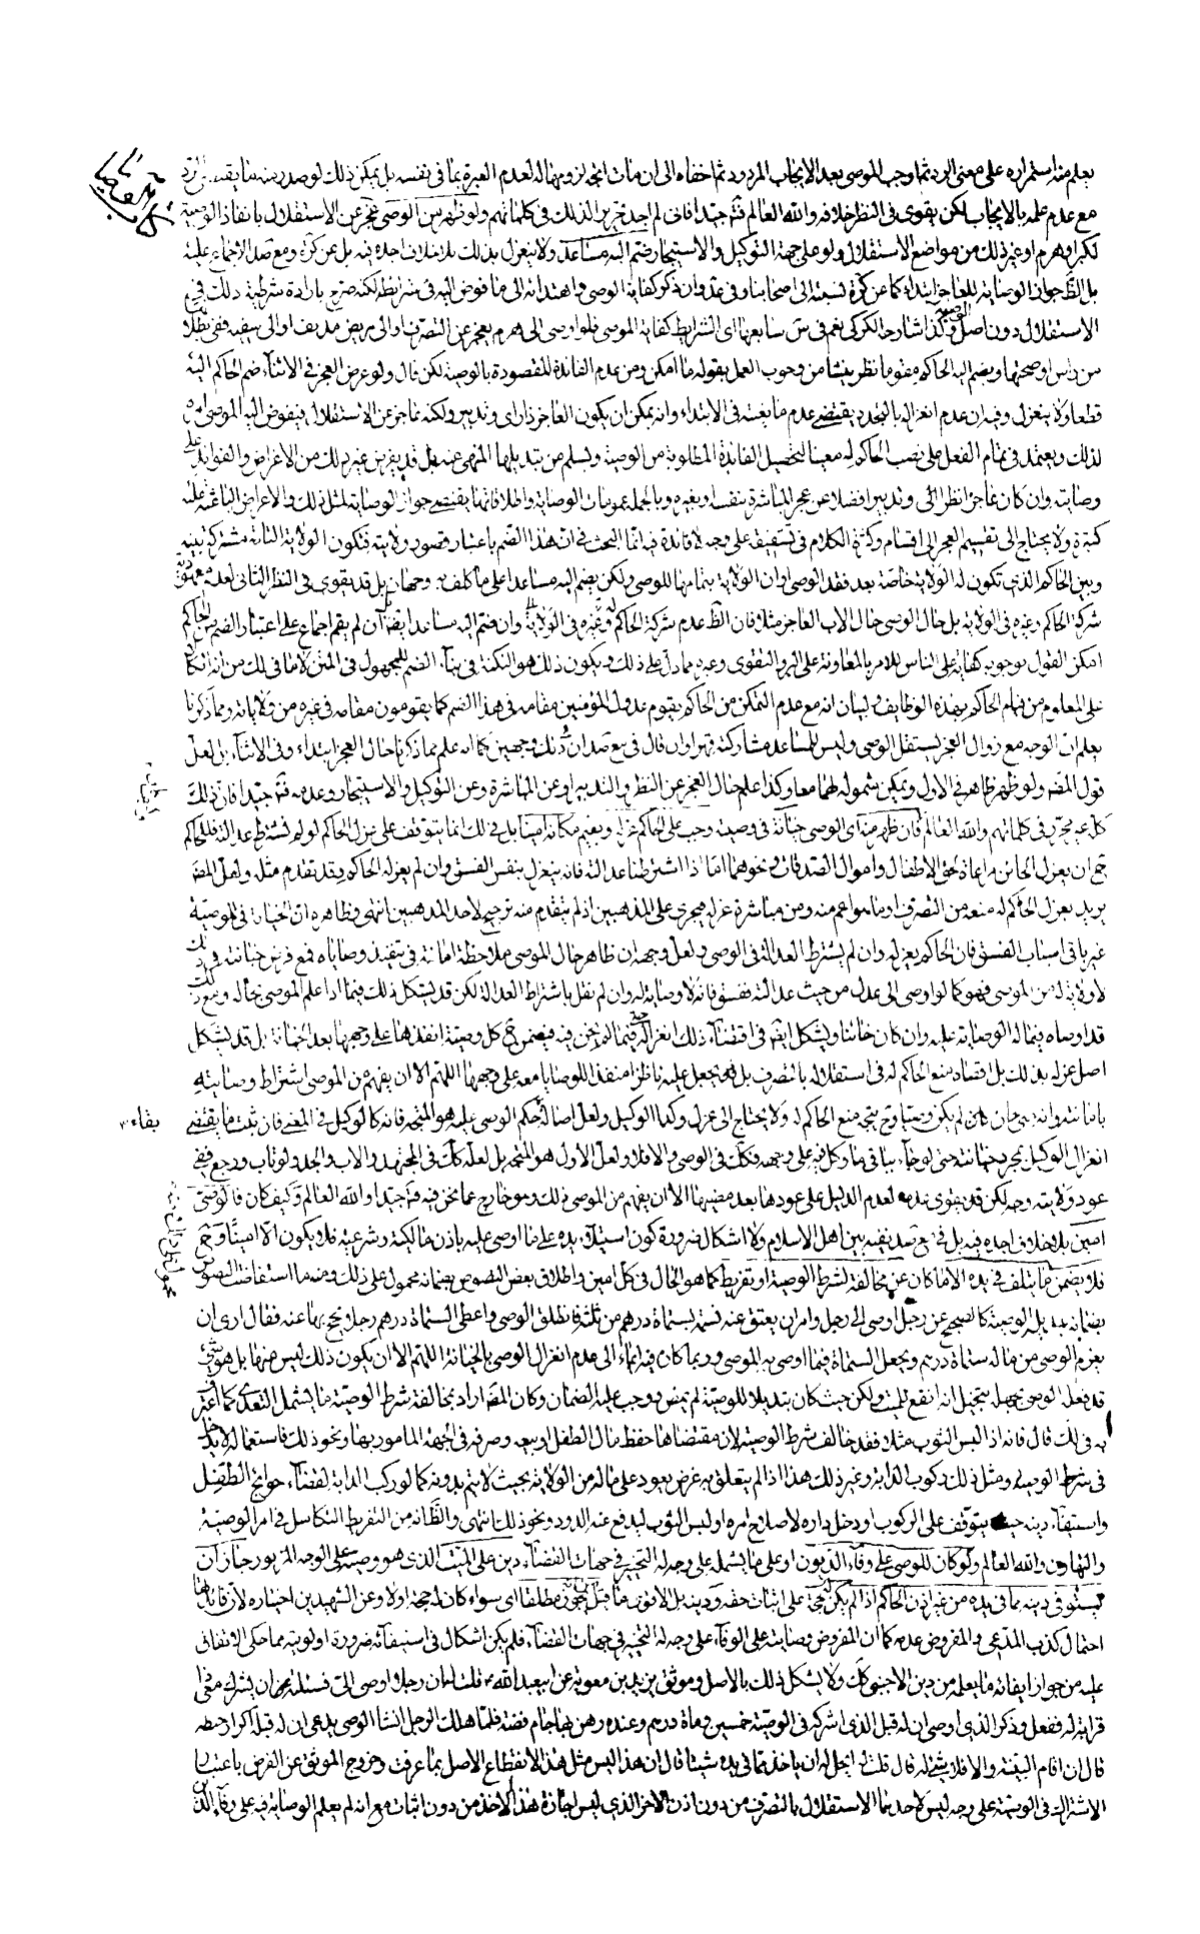 يعلم منه استمراره على معنى الرد ثم اوجب الموصى بعد الايجاب المردود ثم اخفاه الى ان مات اتجه لزومها له لعدم العبرة بما فى نفسه بل يمكن ذلك لو صدر منه ما يقتضى الرد
مع عدم علمه بالايجاب لكن يقوى فى النظر خلافه والله العالم فتأمل جيدا فانى لم اجد تحريرا لذلك فى كلماتهم ولو ظهر من الوصى عجز عن الاستقلال بانفاذ الوصية
لكبر او هرم او غير ذلك من مواضع الاستقلال ولو على جهة التوكيل والاستيجار ضم اليه مساعد ولا ينعزل بذلك بلا خلاف اجده فيه بل عن كرة ومع صد الاجماع عليه
بل الظ جواز الوصاية للعاجز ابتداء كما عن كرة نسبته الى اصحابنا وفى عد وان ذكر كفاية الوصى واهتدائه الى ما فوض اليه فى شرائطه لكنه صرح بارادة شرطية ذلك فى
الاستقلال دون اصل الوصية وكذا شارحه الكركى نعم فى س سابعها اى الشرايط كفاية الموصى فلو اوصى الى هرم يعجز عن التصرف او الى مريض مدنف او الى سفيه ففى بطلانها
من راس او صحتها ويضم اليه الحاكم مقوما نظر ينشأ من وجوب العمل بقوله ما امكن ومن عدم الفائدة المقصودة بالوصية لكن قال ولو عرض العجز فى الاثناء ضم الحاكم اليه
قطعا ولا ينعزل وفيه ان عدم انعزاله بالتجدد يقتضى عدم مانعيته فى الابتداء وانه يمكن ان يكون العاجز ذا راى وتدبير ولكنه عاجز عن الاستقلال فيفوض اليه الموصى امره
لذلك ويعتمد فى تمام الفعل على نصب الحاكم له معينا لتحصيل الفائدة المطلوبة من الوصية وتسلم من تبديلها المنهى عنه بل قد يفرض غير ذلك من الاغراض والفوائد على
وصايته وان كان عاجزا نظرا الى وتدبيرا فضلا عن عجز المباشرة بنفسه او بغيره وبالجملة عمومات الوصاية واطلاقاتها يقتضى جواز الوصاية لمثل ذلك والاغراض الباعثة عليه
كثيرة ولا يحتاج الى تقسيم العجز الى اقسام وكثرة الكلام فى تشقيقه على وجه لا فائدة فيه انما البحث فى ان هذا الضم باعتبار قصور ولايته فتكون الولاية الثابتة مشتركة بينه
وبين الحاكم الذى تكون له الولاية خاصة بعد فقد الوصى او ان الولاية بتمامها للوصى ولكن يضم اليه مساعدا على ما كلف به وجهان بل قد يقوى فى النظر الثانى لعدم
شركة الحاكم وغيره فى الولاية بل حال الوصى حال الاب العاجز مثلا فان الظ عدم شركة الحاكم له وغيره فى الولاية وان ضم اليه مساعدا بل ان لم يقم اجماع على اعتبار الضم من الحاكم
امكن القول بوجوبه كفاية على الناس للامر بالمعاونة على البر والتقوى وغيره مما دل على ذلك ويكون ذلك هو النكتة فى بناء الضم للمجهول فى المتن لا ما فى لك من انه اتكالا
على المعلوم من قيام الحاكم بهذه الوظايف ولبيان انه مع عدم التمكن من الحاكم يقوم عدول المؤمنين مقامه فى هذا الضم كما يقومون مقامه فى غيره من ولاياته ومما ذكرنا
يعلم ان الوجه مع زوال العجز يستقل الوصى وليس للمساعد مشاركته قهرا وان قال فى مع صد ان فى ذلك وجهين كما انه علم مما ذكرنا حال العجز ابتداء وفى الاثناء بل لعل
قول المصنف ولو ظهر ظاهر فى الاول ويمكن شموله لهما معا وكذا علم حال العجز عن النظر والتدبير او عن المباشرة وعن التوكيل والاستيجار وعدمه فتأمل جيدا فان ذلك
كله غير محرر فى كلماتهم والله العالم فان ظهر منه اى الوصى خيانة فى وصيته وجب على الحاكم عزله ويقيم مكانه امينا بل فى لك انما يتوقف على عزل الحاكم لو لم نشترط عدالته فللحاكم
ح ان يعزل الخائن مراعاة لحق الاطفال واموال الصدقات ونحوهما اما اذا اشترطنا عدالته فانه ينعزل بنفس الفسق وان لم يعزله الحاكم وقد تقدم مثله ولعل المصنف
يريد بعزل الحاكم له منعه من التصرف او ما هو اعم منه ومن مباشرة عزله فيجرى على المذهبين اذ لم يتقدم منه ترجيح لاحد المذهبين انتهى وظاهره ان الخيانة فى الوصية
غير باقى اسباب الفسق فان الحاكم يعزله وان لم يشترط العدالة فى الوصى ولعل وجهه ان ظاهر حال الموصى ملاحظة امانته فى تنفيذ وصاياه فمع فرض خيانته فى ذلك
لا ولاية له من الموصى فهو كما لو اوصى الى عدل من حيث عدالته ففسق فانه لا وصاية له وان لم نقل باشتراط العدالة لكن قد يشكل ذلك فيما اذا علم الموصى بحاله ومع ذلك
قد اوصاه فيما له الوصاية عليه وان كان خائنا ويشكل ايضا فى اقتضاء ذلك انعزاله فيما لم يخن فيه فيضمن ح كل وصية انفذها على وجهها بعد الخيانة بل قد يشكل
اصل عزله بذلك بل اقصاه منع الحاكم له فى استقلاله بالتصرف بل يجعل عليه ناظرا منفذا للوصايا معه على وجهها اللهم الا ان يفهم من الموصى اشتراط وصايته
بامانته وانه متى خان لم يكن وصيا وح يتجه منع الحاكم له ولا يحتاج الى عزل وكذا الوكيل ولعل اصالة بقاء حكم الوصى عليه هو المتجه فانه كالوكيل فى المعنى فان ثبت ما يقتضى
انعزال الوكيل بمجرد خيانته حتى لو جاء بباقى ما وكل فيه على وجهه فكذلك فى الوصى والا فلا ولعل الاول هو المتجه بل لعله كك فى المجتهد والاب والجد ولو تاب ورجع ففى
عود ولايته وجه لكن قد يقوى عدمه لعدم الدليل على عودها بعد مضيها الا ان يفهم من الموصى ذلك وهو خارج عما نحن فيه فتأمل جيدا والله العالم وكيف كان فالوصى
امين بلا خلاف اجده فيه بل فى مع صد نفيه بين اهل الاسلام ولا اشكال ضرورة كون استيلاء يده على ما اوصى عليه باذن مالكية وشرعية فلا يكون الا امينا وح
فلا يضمن ما يتلف فى يده الا ما كان عن مخالفة لشرط الوصية او تفريط كما هو الحال فى كل امين واطلاق بعض النصوص بضمانه محمول على ذلك ومنه ما استفاضت النصوص
بضمانه بتبديل الوصية كالصحيح عن رجل اوصى الى رجل وامره ان يعتق عنه نسمة بستمأة درهم من ثلثه فانطلق الوصى واعطى الستمأة درهم رجلا يحج بها عنه فقال ارى ان
يغرم الوصى من ماله ستمأة درهم ويجعل الستمأة فيما اوصى به الموصى وربما كان فيه ايماء الى عدم انعزال الوصى بالخيانة اللهم الا ان يكون ذلك ليس منها بل هو شىء
قد فعله الوصى بجهله بتخيل انه انفع للميت ولكن حيث كان تبديلا للوصية لم يمض ووجب عليه الضمان وكان المصنف اراد بمخالفة شرط الوصية ما يشمل التعدى كما اعترف
به فى لك قال فانه اذا لبس الثوب مثلا فقد خالف شرط الوصية لان مقتضاها حفظ مال الطفل او بيعه وصرفه فى الجهة المأمور بها ونحو ذلك فاستعماله لا يدخل
فى شرط الوصية ومثل ذلك ركوب الدابة وغير ذلك هذا اذا لم يتعلق به غرض يعود على ماله من الولاية بحيث لا يتم بدونه كما لو ركب الدابة لقضاء حوائج الطفل
واستيفاء دينه حيث يتوقف على الركوب او دخل داره لاصلاح امره او لبس الثوب ليدفع عنه الدود ونحو ذلك انتهى والظ انه من التفريط التكاسل فى امر الوصية
والتهاون والله العالم ولو كان للوصى على وفاء الديون او على ما يشمله على وجه له التخيير فى جهات القضاء دين على الميت الذى هو وصيه على الوجه المزبور جاز ان
يستوفى دينه مما فى يده من غير اذن الحاكم اذا لم يكن له حجة على اثبات حقه ودينه بل الاقوى ما قيل يجوز مطلقا اى سواء كان له حجة او لا وعن الشهيدين اختياره لان
احتمال كذب المدعى والمفروض عدمه كما ان المفروض وصايته على الوفاء على وجه له التخيير فى جهات القضاء فلم يكن اشكال فى استيفائه ضرورة اولويته مما حكى الاتفاق
عليه من جواز ايفائه ما يعلمه من دين الاجنبى كك ولا يشكل ذلك بالاصل وموثق بريد بن معوية عن ابى عبد الله ع قلت له ان رجلا اوصى الى فسئلته ان يشرك معى ذا
قرابة له ففعل وذكر الذى اوصى ان له قبل الذى اشركه فى الوصية خمسين ومأة درهم وعنده رهن بها جام فضة فلما هلك الرجل انشأ الوصى يدعى ان له قبله اكرار حنطة
قال ان اقام البينة والا فلا شىء له قال قلت له ايحل له ان ياخذ مما فى يده شيئا قال لا ان هذا ليس مثل هذا لانقطاع الاصل بما عرفت وخروج الموثق عن الفرض باعتبار
الاشتراك فى الوصية على وجه ليس لاحدهما الاستقلال بالتصرف من دون اذن الاخر الذى ليس اجازة هذا الاخذ من دون اثبات مع انه لم يعلم الوصاية فيه على وفاء الدين
بقاء